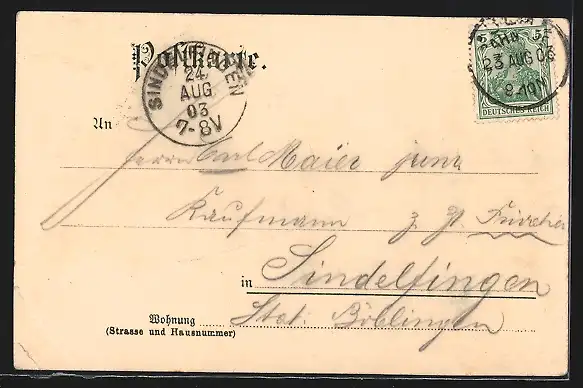 Postkarte.
SINDELFINGEN
24
AUG
03
7-8V
5
23 AUG 03
DEUTSCHES REICH
An
Herrn Carl Maier junr
Kaufmann z. Zt.
in Sindelfingen
Wohnung
Stat. Böblingen
(Strasse und Hausnummer)